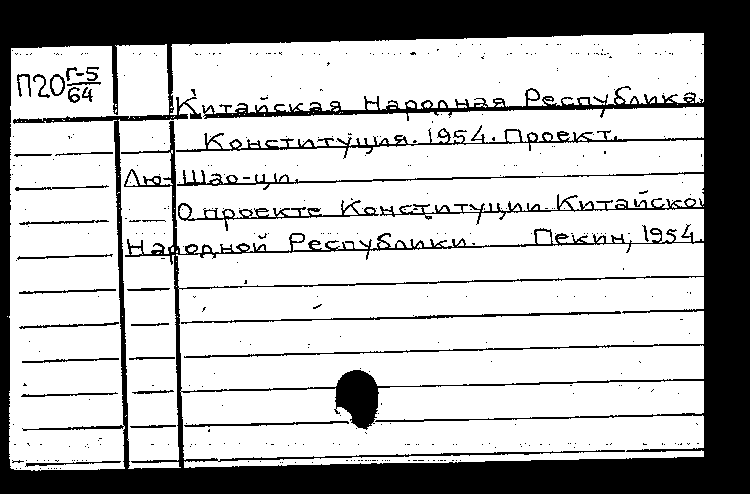 П20 Г-5/64
Китайская Народная Республика.
Конституция. 1954. Проект.
Лю-Шао-ци.
О проекте Конституции Китайской
Народной Республики. Пекин, 1954.